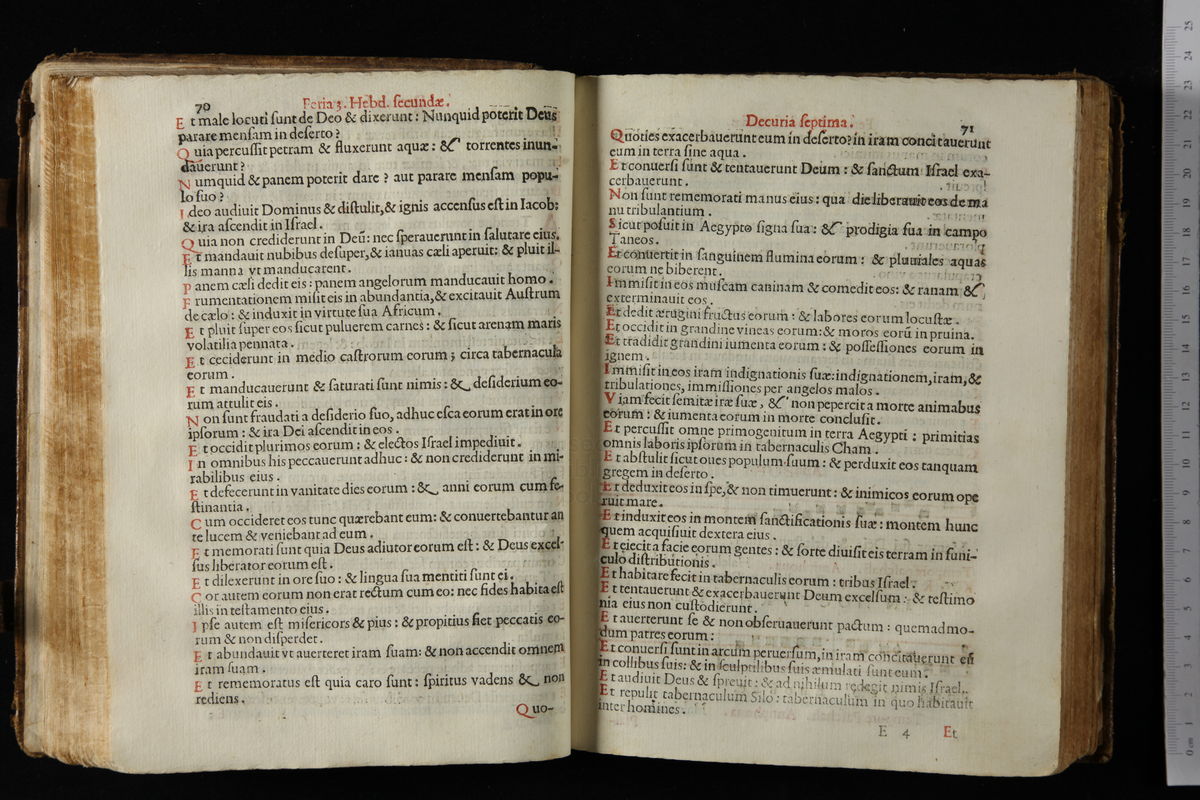 70
Feria 3. Hebd. secundæ.
Et male locuti ſunt de Deo & dixerunt: Nunquid poterit Deus
parare menſam in deſerto?
Quia percuſſit petram & fluxerunt aquæ: & torrentes inun-
dauerunt?
Numquid & panem poterit dare? aut parare menſam popu-
lo ſuo?
Ideo audiuit Dominus & diſtulit, & ignis accenſus eſt in Iacob:
& ira aſcendit in Iſrael.
Quia non crediderunt in Deū: nec ſperauerunt in ſalutare eius.
Et mandauit nubibus deſuper, & ianuas cæli aperuit: & pluit il-
lis manna vt manducarent.
Panem cæli dedit eis: panem angelorum manducauit homo.
Frumentationem miſit eis in abundantia, & excitauit Auſtrum
de cælo: & induxit in virtute ſua Africum.
Et pluit ſuper eos ſicut puluerem carnes: & ſicut arenam maris
volatilia pennata.
Et ceciderunt in medio caſtrorum eorum; circa tabernacula
eorum.
Et manducauerunt & ſaturati ſunt nimis: & deſiderium eo-
rum attulit eis.
Non ſunt fraudati a deſiderio ſuo, adhuc eſca eorum erat in ore
ipſorum: & ira Dei aſcendit in eos.
Et occidit plurimos eorum: & electos Iſrael impediuit.
In omnibus his peccauerunt adhuc: & non crediderunt in mi-
rabilibus eius.
Et defecerunt in vanitate dies eorum: & anni eorum cum fe-
ſtinantia.
Cum occideret eos tunc quærebant eum: & conuertebantur an
te lucem & veniebant ad eum.
Et memorati ſunt quia Deus adiutor eorum eſt: & Deus excel-
ſus liberator eorum eſt.
Et dilexerunt in ore ſuo: & lingua ſua mentiti ſunt ei.
Cor autem eorum non erat rectum cum eo: nec fides habita eſt
illis in teſtamento eius.
Ipſe autem eſt miſericors & pius: & propitius fiet peccatis eo-
rum & non diſperdet.
Et abundauit vt auerteret iram ſuam: & non accendit omnem
iram ſuam.
Et rememoratus eſt quia caro ſunt: ſpiritus vadens & non
rediens.
Quo-
Decuria ſeptima.
71
Quoties exacerbauerunt eum in deſerto? in iram concitauerunt
eum in terra ſine aqua.
Et conuerſi ſunt & tentauerunt Deum: & ſanctum Iſrael exa-
cerbauerunt.
Non ſunt rememorati manus eius: qua die liberauit eos de ma
nu tribulantium.
Sicut poſuit in Aegypto ſigna ſua: & prodigia ſua in campo
Taneos.
Et conuertit in ſanguinem flumina eorum: & pluuiales aquas
eorum ne biberent.
Immiſit in eos muſcam caninam & comedit eos: & ranam &
exterminauit eos.
Et dedit ærugini fructus eorum: & labores eorum locuſtæ.
Et occidit in grandine vineas eorum: & moros eorū in pruina.
Et tradidit grandini iumenta eorum: & poſſeſſiones eorum in
ignem.
Immiſit in eos iram indignationis ſuæ: indignationem, iram, &
tribulationes, immiſſiones per angelos malos.
Viam fecit ſemitæ iræ ſuæ, & non pepercit a morte animabus
eorum: & iumenta eorum in morte concluſit.
Et percuſſit omne primogenitum in terra Aegypti: primitias
omnis laboris ipſorum in tabernaculis Cham.
Et abſtulit ſicut oues populum ſuum: & perduxit eos tanquam
gregem in deſerto.
Et deduxit eos in ſpe, & non timuerunt: & inimicos eorum ope
ruit mare.
Et induxit eos in montem ſanctificationis ſuæ: montem hunc
quem acquiſiuit dextera eius.
Et eiecit a facie eorum gentes: & ſorte diuiſit eis terram in funi-
culo diſtributionis.
Et habitare fecit in tabernaculis eorum: tribus Iſrael.
Et tentauerunt & exacerbauerunt Deum excelſum: & teſtimo
nia eius non cuſtodierunt.
Et auerterunt ſe & non obſeruauerunt pactum: quemadmo-
dum patres eorum:
Et conuerſi ſunt in arcum peruerſum, in iram concitauerunt eū
in collibus ſuis: & in ſculptilibus ſuis æmulati ſunt eum.
Et audiuit Deus & ſpreuit: & ad nihilum redegit nimis Iſrael.
Et repulit tabernaculum Silo: tabernaculum in quo habitauit
inter homines.
E 4
Et